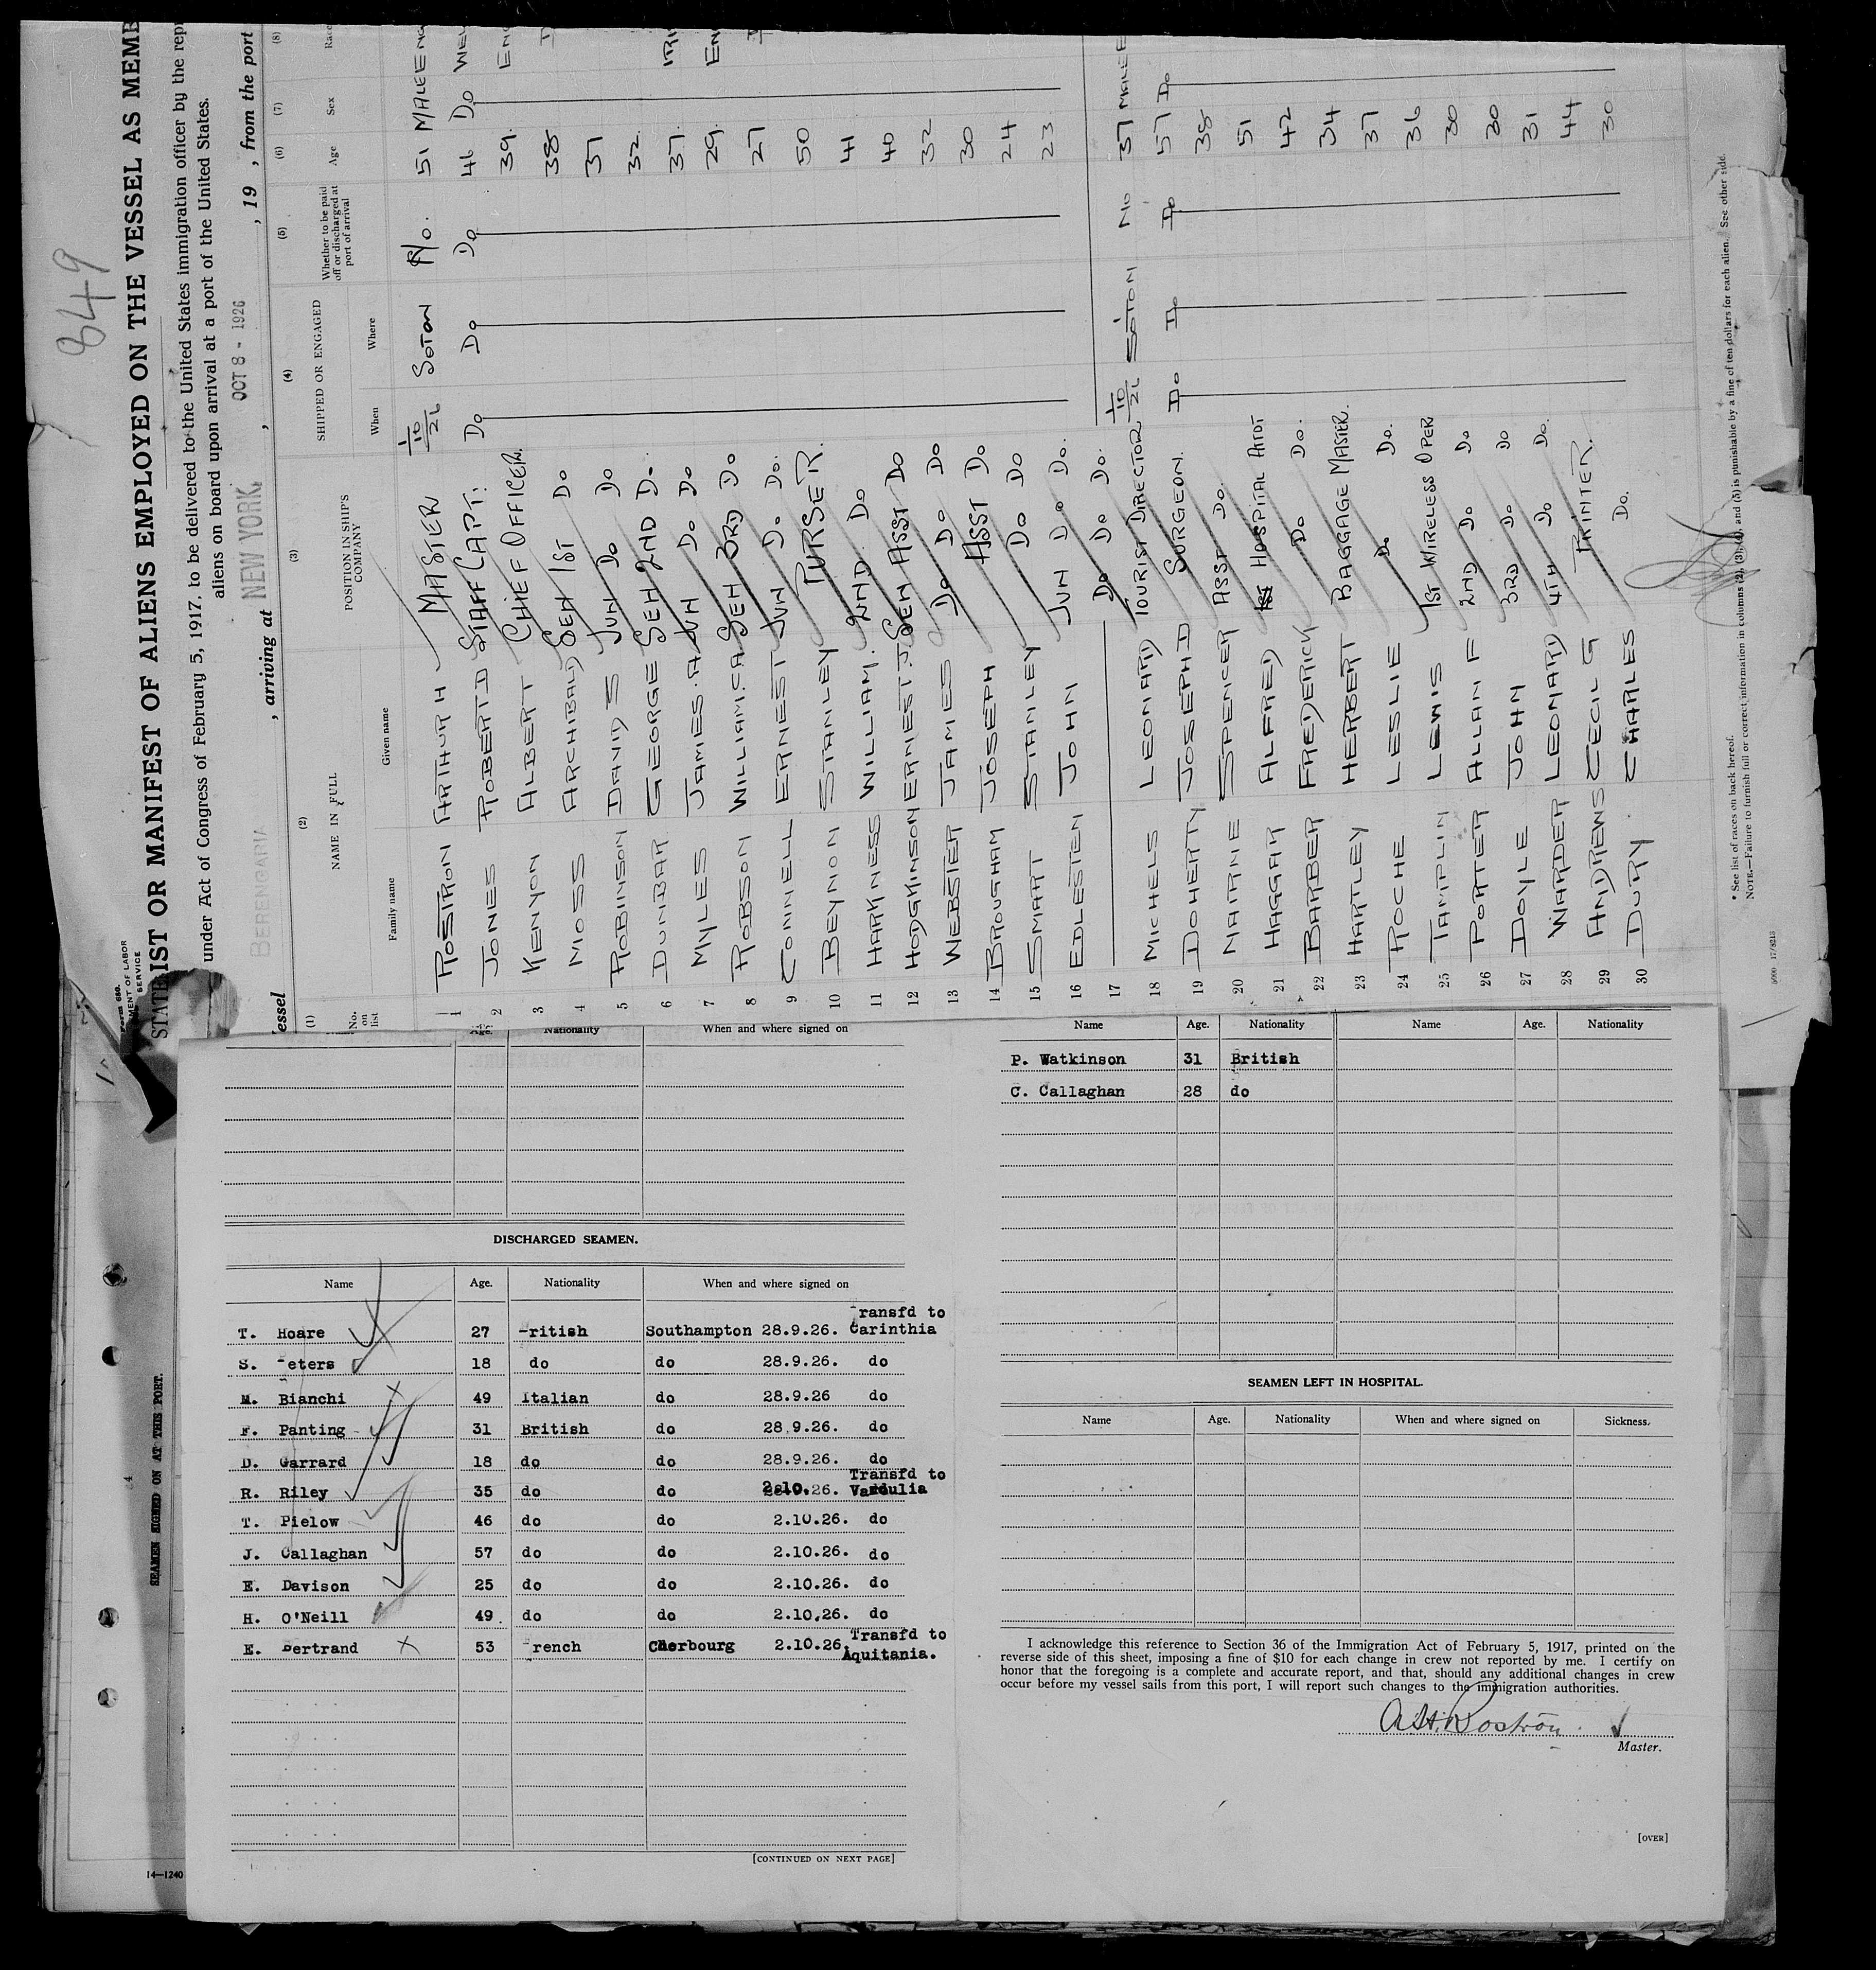 849
STATE
IST OR MANIFEST OF ALIENS EMPLOYED ON THE VESSEL AS MEMB
under Act of Congress of February 5, 1917, to be delivered to the United States immigration officer by the rep
aliens on board upon arrival at a port of the United States.
Form 680
MENT OF LABOR
SERVICE
essel BERENGARIA , arriving at NEW YORK, OCT 8 - 1926 , 19 , from the port
(1) (2) (3) (4) (5) (6) (7) (8)
No. on list NAME IN FULL POSITION IN SHIP'S COMPANY SHIPPED OR ENGAGED Whether to be paid off or discharged at port of arrival Age Sex Race
Family name Given name When Where
1 ROSTRON ARTHUR H MASTER 1/10/26 SOTON No. 51 MALE ENG
2 JONES ROBERT D STAFF CAPT: Do Do Do 46 Do WEL
3 KENYON ALBERT CHIEF OFFICER. 39 ENG
4 MOSS ARCHIBALD SEN 1ST Do 38
5 ROBINSON DAVID S JUN Do Do 37
6 DUNBAR GEORGE SEN 2ND Do. 32
7 MYLES JAMES. A JUN Do Do 37 IRI
8 ROBSON WILLIAM. C. A SEN 3RD Do 29 EN
9 CONNELL ERNEST JUN Do Do. 27
10 BEYNON STANLEY PURSER. 50
11 HARKNESS WILLIAM. 2ND. Do 41
12 HODGKINSON ERNEST. J. SEN ASST Do 40
13 WEBSTER JAMES Do Do Do 32
14 BROUGHAM JOSEPH ASST Do 30
15 SMART STANLEY Do Do 24
16 EDLESTEN JOHN JUN Do Do. 23
17 Do Do Do.
18 MICHELS LEONARD TOURIST DIRECTOR 1/10/26 SOTON No 37 MALE E
19 DOHERTY JOSEPH D SURGEON. Do Do Do 57 Do
20 NAIRNE SPENCER ASST Do. 38
21 HAGGAR ALFRED HOSPITAL ATDT 51
22 BARBER FREDERICK Do Do. 42
23 HARTLEY HERBERT BAGGAGE MASTER. 34
24 ROCHE LESLIE Do Do. 37
25 TAMPLIN LEWIS 1ST WIRELESS OPER 36
26 PORTER ALLAN F 2ND Do Do 30
27 DOYLE JOHN 3RD Do Do 30
28 WARDER LEONARD 4TH Do Do. 31
29 ANDREWS CECIL G PRINTER. 44
30 DURY CHARLES Do. 30
* See list of races on back hereof.
NOTE.—Failure to furnish full or correct information in columns (2), (3), (4), and (5) is punishable by a fine of ten dollars for each alien. See other side.
Age. Nationality When and where signed on
DISCHARGED SEAMEN.
Name Age. Nationality When and where signed on
T. Hoare 27 ritish Southampton 28.9.26. ransfd to Carinthia
S. eters 18 do do 28.9.26. do
M. Bianchi 49 Italian do 28.9.26 do
F. Panting 31 British do 28.9.26. do
D. Garrard 18 do do 28.9.26. do
R. Riley 35 do do 2.10.26. Transfd to Vardulia
T. Pielow 46 do do 2.10.26. do
J. Callaghan 57 do do 2.10.26. do
E. Davison 25 do do 2.10.26. do
H. O'Neill 49. do do 2.10.26. do
E. Bertrand 53 rench Cherbourg 2.10.26 Transfd to Aquitania.
[CONTINUED ON NEXT PAGE]
Name Age. Nationality Name Age. Nationality
P. Watkinson 31 British
C. Callaghan 28 do
SEAMEN LEFT IN HOSPITAL.
Name Age. Nationality When and where signed on Sickness.
I acknowledge this reference to Section 36 of the Immigration Act of February 5, 1917, printed on the
reverse side of this sheet, imposing a fine of $10 for each change in crew not reported by me. I certify on
honor that the foregoing is a complete and accurate report, and that, should any additional changes in crew
occur before my vessel sails from this port, I will report such changes to the immigration authorities.
A.H. Rostron.
Master.
[OVER]
SEAMEN SIGNED ON AT THIS PORT.
14—1240